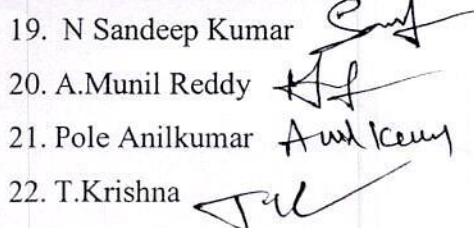 19. N Sandeep Kumar
20. A.Munil Reddy
21. Pole Anilkumar Anil Kumar
22. T.Krishna